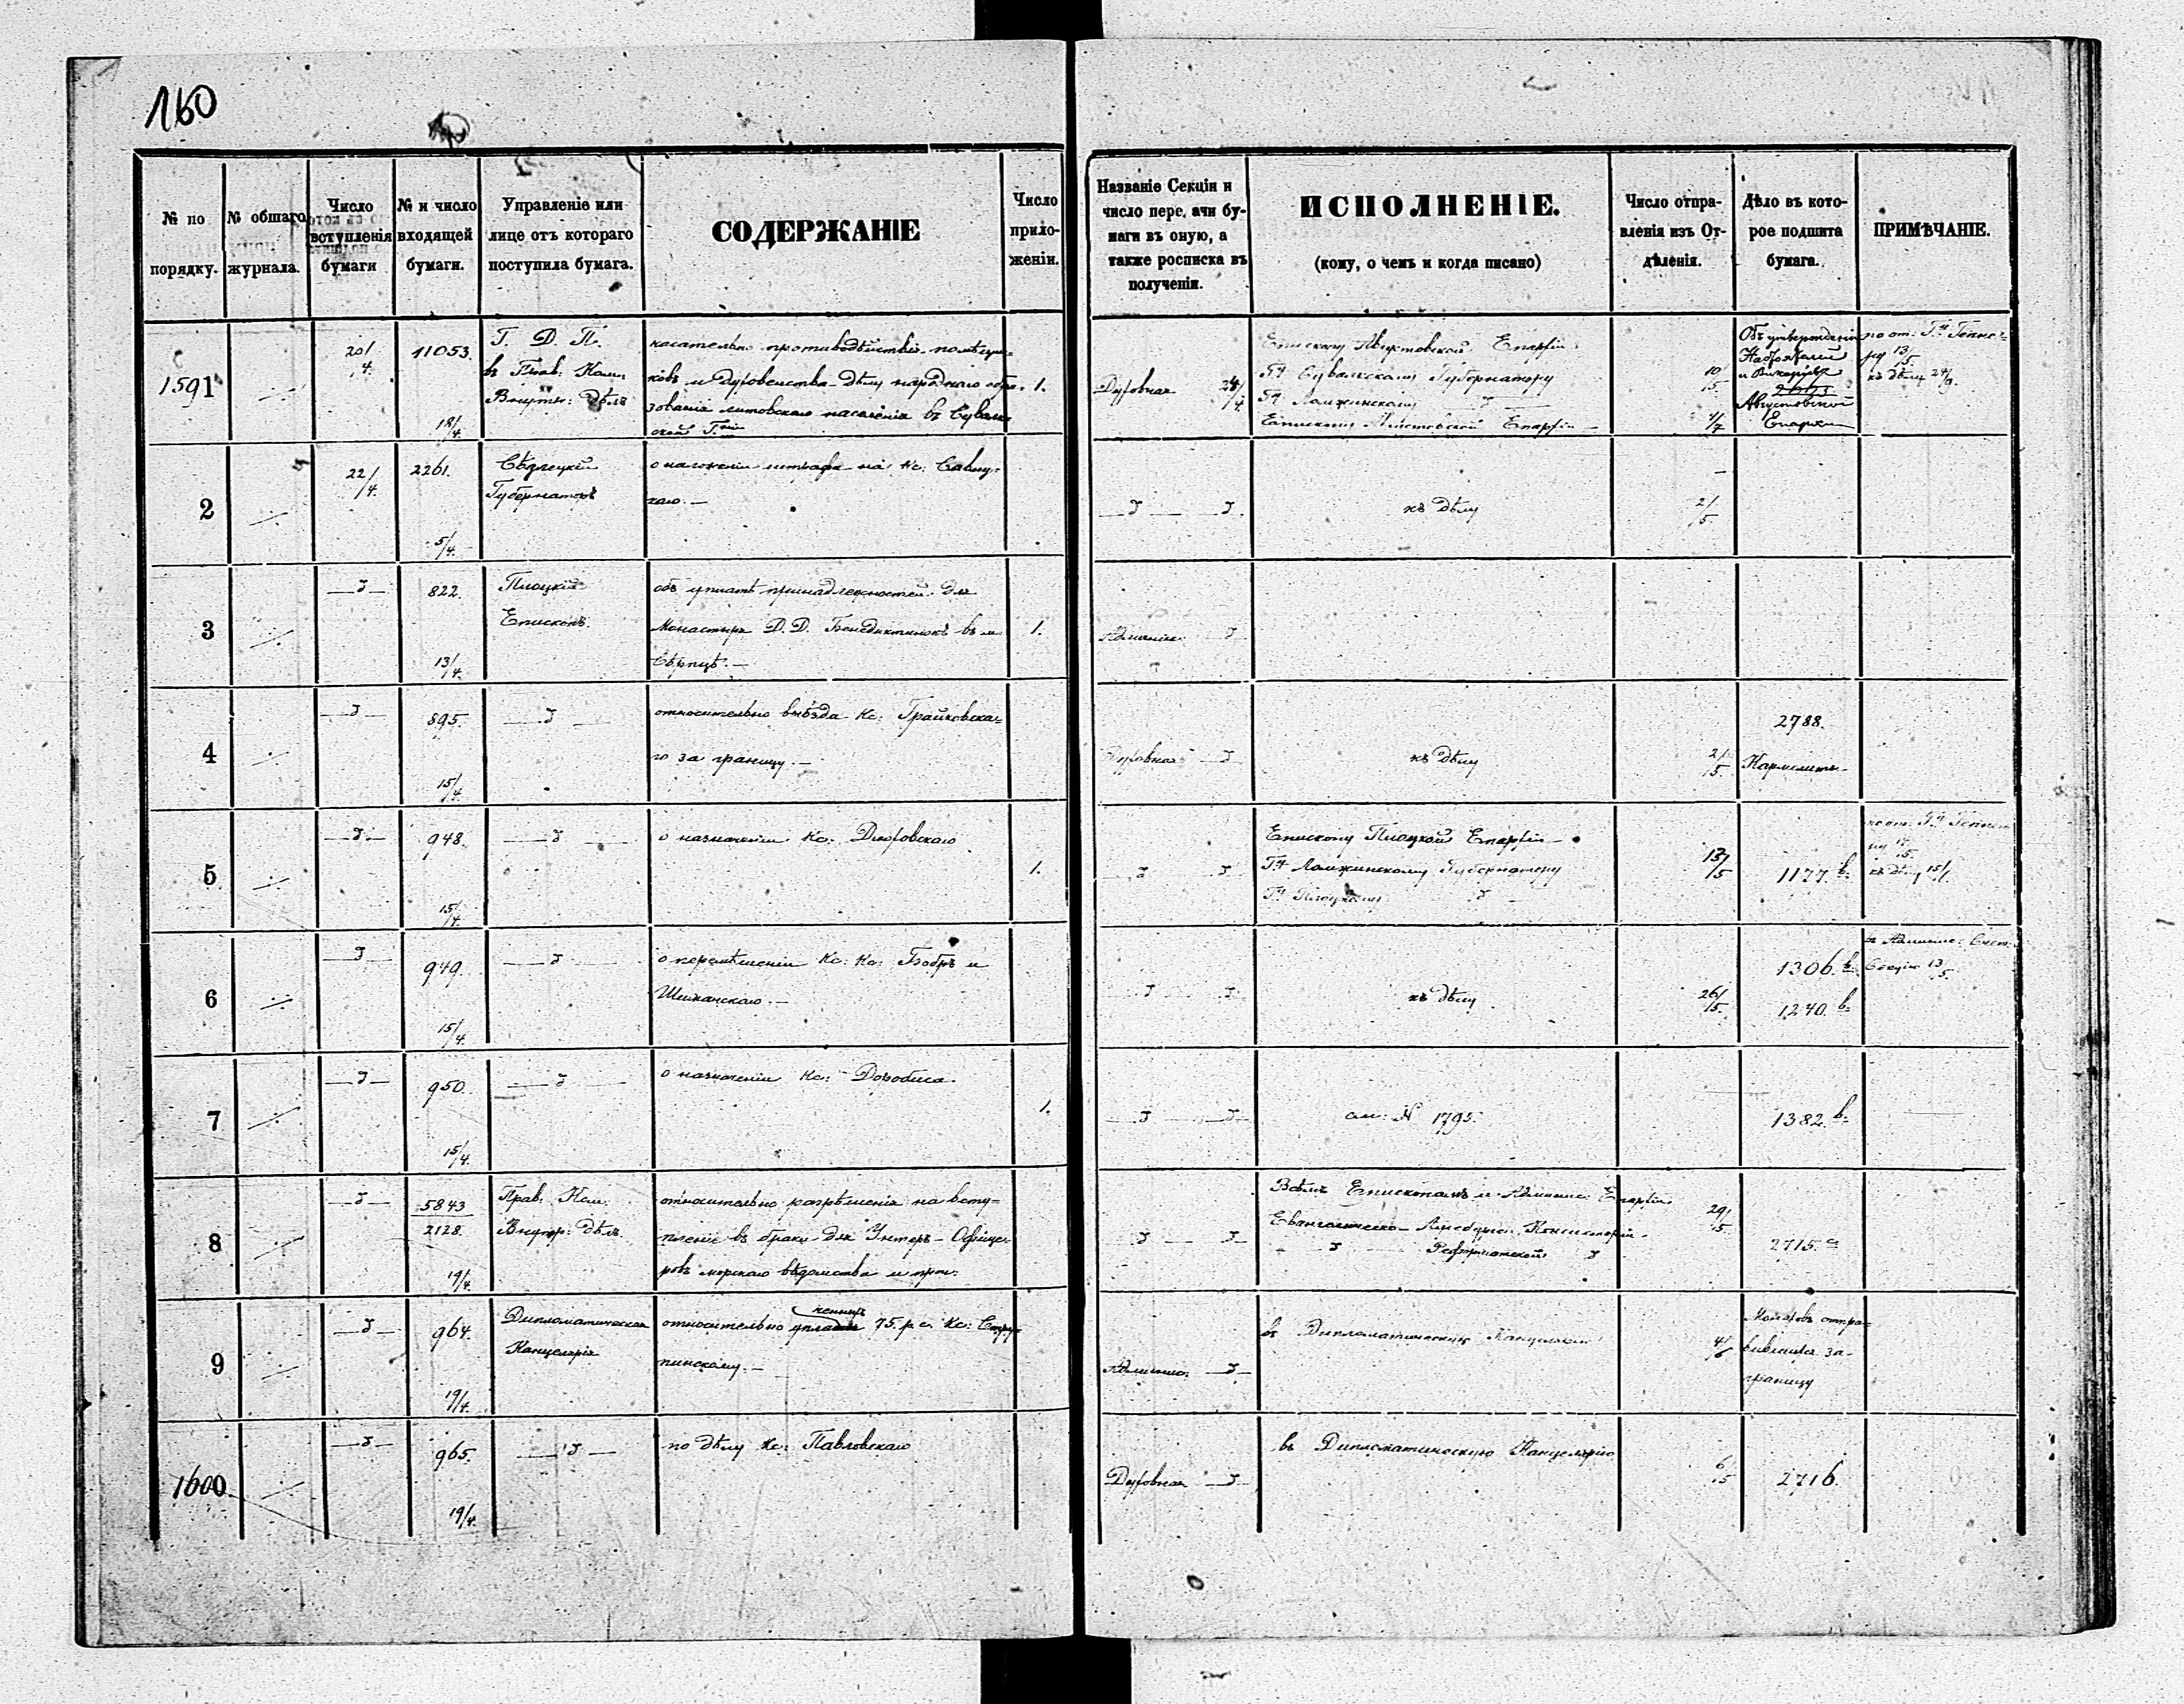 160
№ по порядку.
№ общаго журнала.
Число вступленія бумаги
№ и число входящей бумаги.
Управленіе или лице отъ котораго поступила бумага.
СОДЕРЖАНІЕ
Число прило-
женіи.
Названіе Секціи и
число пере. ачи бу-
маги въ оную, а
также росписка въ
полученіи.
ИСПОЛНЕНІЕ.
(кому, о чемъ и когда писано)
Число отпра-
вленія изъ От-
дѣленія.
Дѣло въ кото-
рое подшита
бумага.
ПРИМѢЧАНІЕ.
1591
20/4.
11053.
18/4.
Г. Д. П.
въ Прав: Ком:
Внутр: Дѣлъ
касательно противодѣйствія помѣщи-
ковъ и духовенства дѣлу народнаго обра-
зованія литовскаго населенія въ Сувалк-
ской Г.
1.
Духовная 24/4
Епископу Августовской Епархіи
Гу Сувалкскому Губернатору
Гу Ломжинскому д
Епископу Августовской Епархіи
10/5.
4/7
Объ утвержденіи
и Викаріевъ
Августовской
Епархіи
по от: Гу
13/5.
къ дѣлу 24/9.
2
22/4.
2261.
5/4.
Сѣдлецкій
Губернаторъ
о наложеніи штрафа на Кс: Савиц-
каго. —
— д — д.
къ дѣлу
2/5.
3
— д —
822.
13/4.
Плоцкій
Епископъ.
объ уплатѣ принадлежностей для
Монастыря Д. Д. Бенедиктинокъ въ м.
Сѣрпцѣ. —
1.
Админис: д
4
— д —
895.
15/4.
— д —
относительно выѣзда Кс: Грайковска-
го за границу. —
Духовная д
къ дѣлу
2/5.
2788.
Кармелиты
5
— д —
948.
15/4.
— д —
о назначеніи Кс:
1.
д д
Епископу Плоцкой Епархіи —
Гу Ломжинскому Губернатору
Гу Плоцкому д
13/5
1177. b.
къ дѣлу 15/
6
— д —
949.
15/4.
— д —
о перемѣщеніи Кс: Кс: Бобръ и
Шиманскаго. —
д д.
къ дѣлу
26/5.
1306. b.
1240. b.
въ Админис:
Секцію 13/5.
7
— д —
950.
15/4.
— д —
о назначеніи Кс:
1.
— д — д —
см: № 1795.
1382. b.
8
— д —
5843
2128.
19/4.
Прав: Ком.
Внутр: Дѣлъ
относительно разрѣшенія на всту-
пленіе въ браки для Унтеръ-Офице-
ровъ морскаго вѣдомства и проч.
— д — д —
Всѣмъ Епископамъ и Админис: Епархіи
Евангелическо- Консисторіи
— д — Реформатской д
29/5.
2715. a
9
— д —
964.
19/4.
Дипломатическая
Канцелярія
относительно уплаты 75 р с. Кс: Стру-
пинскому. —
Админис. — д —
въ Дипломатическую Канцелярію
4/6
Монаховъ отпра-
вившихся за-
границу
1600
— д —
965.
19/4.
— д —
по дѣлу Кс: Павловскаго
Духовная — д —
въ Дипломатическую Канцелярію
6/5
2716.